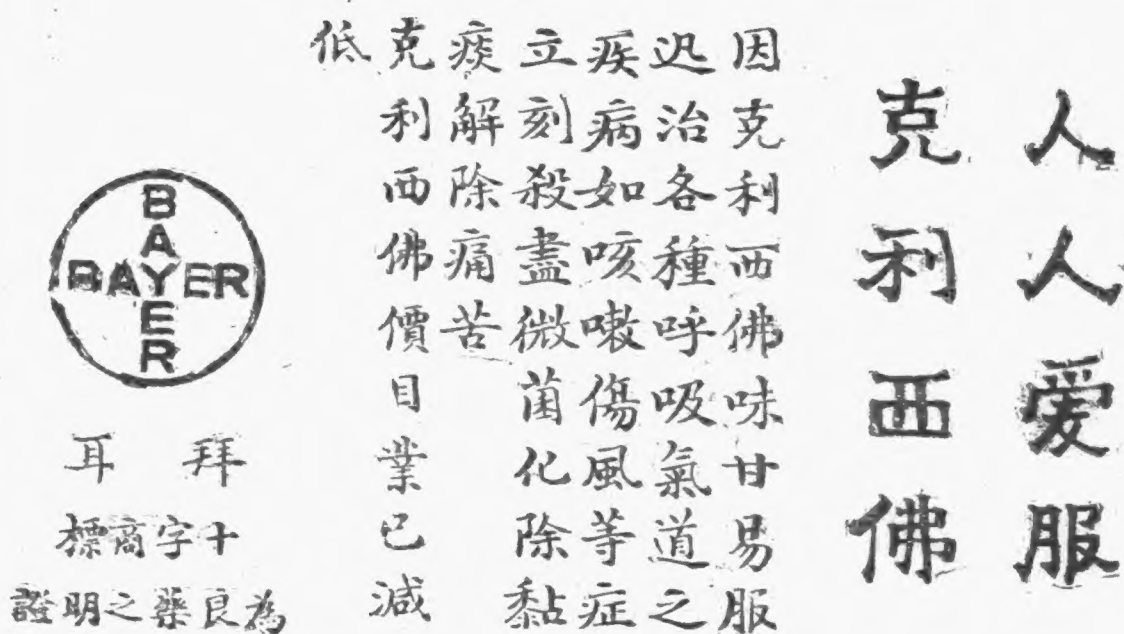 人人爱服
克利西佛
因克利西佛味甘易服
迅治各種呼吸氣道之
疾病如咳嗽傷風等症
立刻殺盡微菌化除黏
痰解除痛苦
克利西佛價目業已減
低
BAYER
BAYER
拜耳
十字商標
為良藥之明證